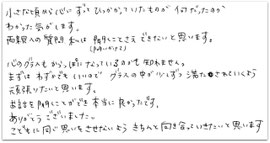 小さな頃から心にずっとひっかかっていたものが何だったのか
わかった気がします。
両親への質問、私は聞くことさえできないと思います。
(今のいままで)
心のグラスもからっぽになっているのかも知れません。
まずはわずかでもいいのでグラスの中が少しずつ満たされていくよう
頑張りたいと思います。
お話を聞くことができ本当に良かったです。
ありがとうございました。
こどもに同じ思いをさせないようきちんと向き合っていきたいと思います